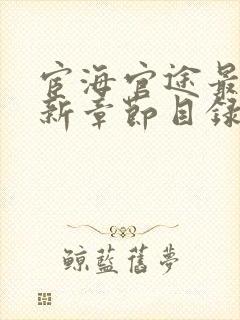 宦海官途最
新章節目錄
鯨藍舊夢